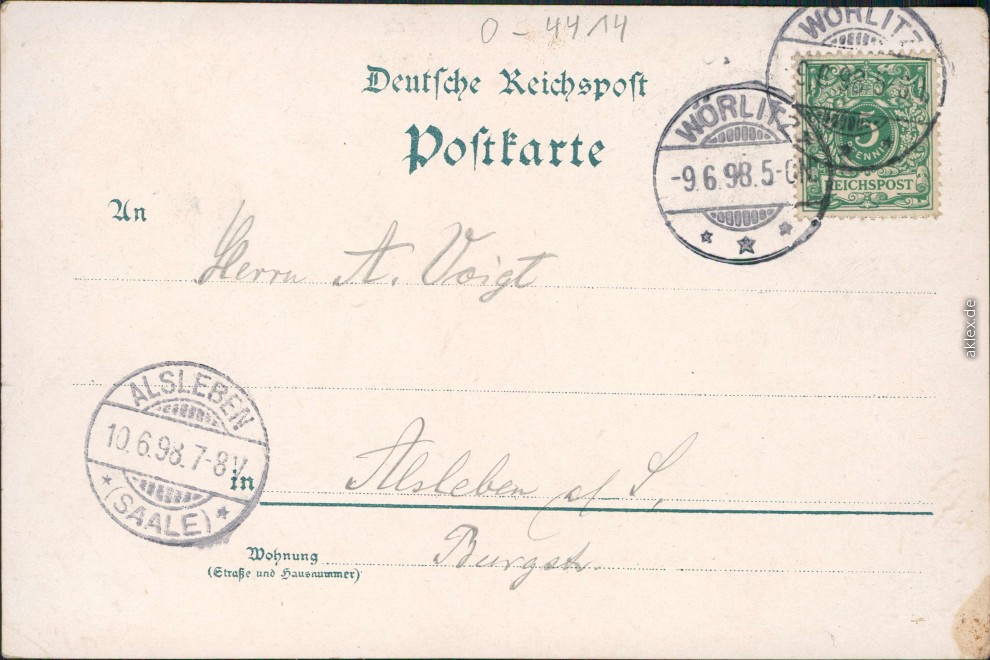 0-4414
Deutsche Reichspost
Postkarte
WÖRLITZ
WÖRLITZ
-9.6.98.5-6N.
5
PFENNIG
REICHSPOST
An
Herrn A. Voigt
aklex.de
ALSLEBEN
10.6.98.7-8V.
(SAALE)
in Alsleben a/S,
Wohnung Burgstr.
(Straße und Hausnummer)